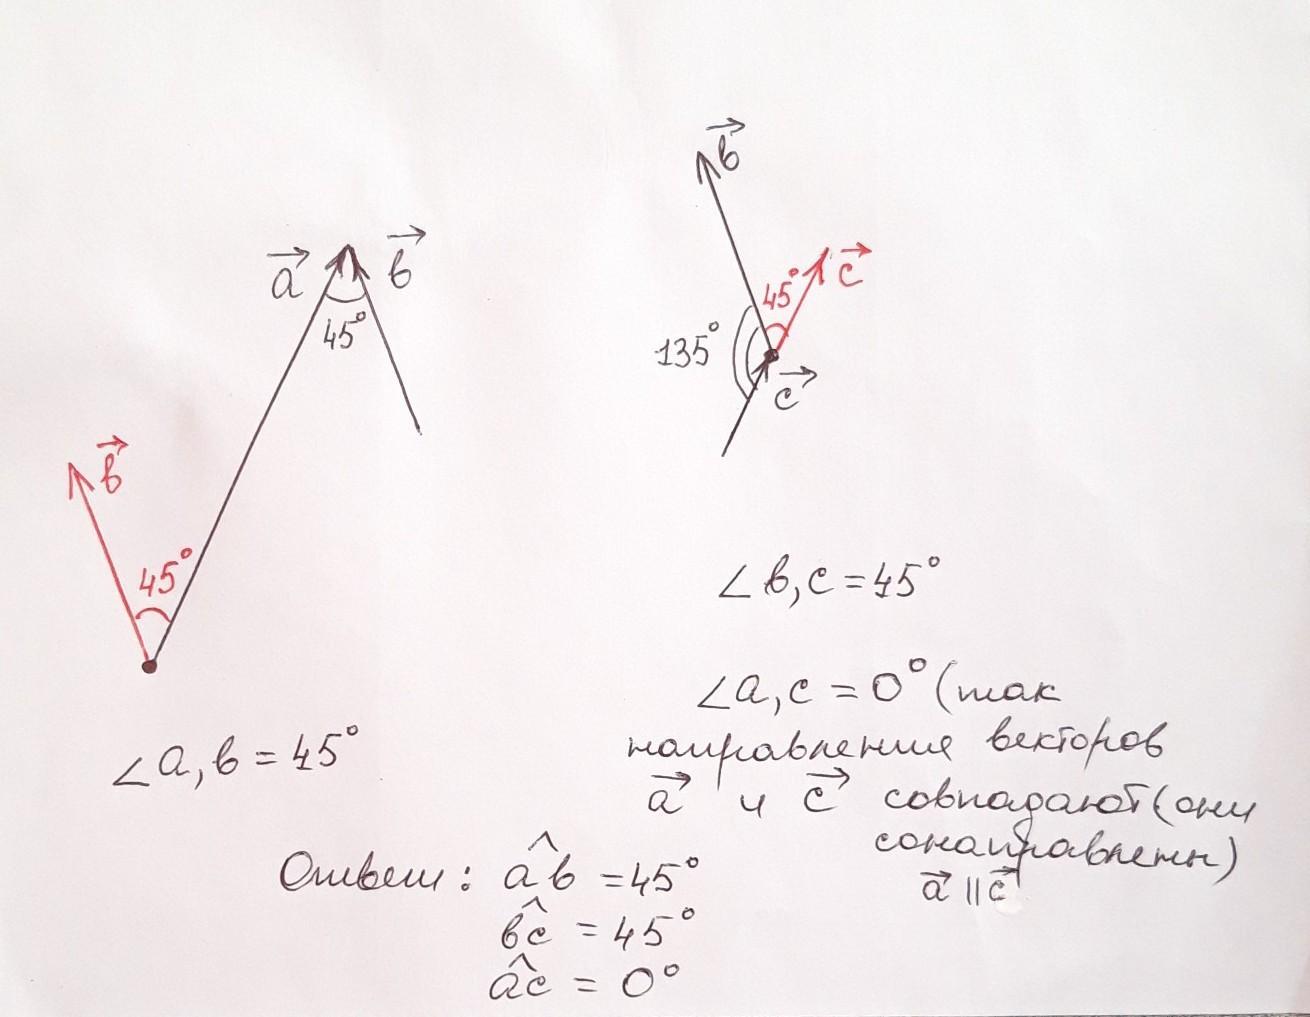 a⃗ b⃗
45°
b⃗
45°
∠a,b = 45°
b⃗
45° c⃗
135°
c⃗
∠b,c = 45°
∠a,c = 0° (так
направления векторов
a⃗ и c⃗ совпадают (они
сонаправлены)
a⃗ || c⃗
Ответ: a^b = 45°
b^c = 45°
a^c = 0°